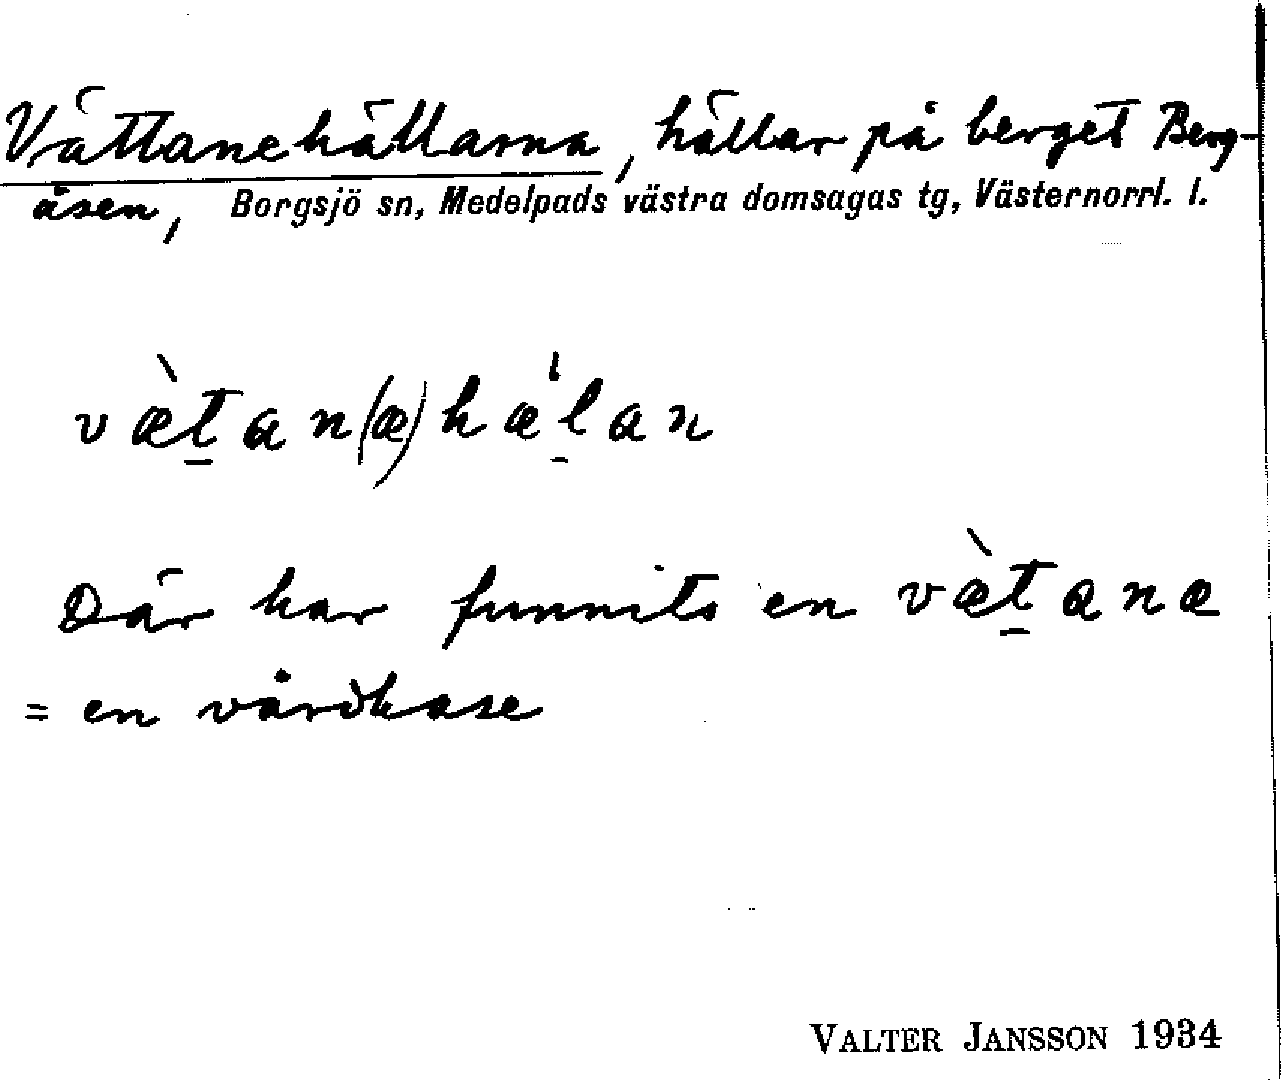 Vättanehällarna, hällar på berget Berg-
åsen, Borgsjö sn, Medelpads västra domsagas tg, Västernorrl. l.
væ̀t̲an(æ)hæ'l̲an
Där har funnits en væ̀t̲ana
= en vårdkase
VALTER JANSSON 1934